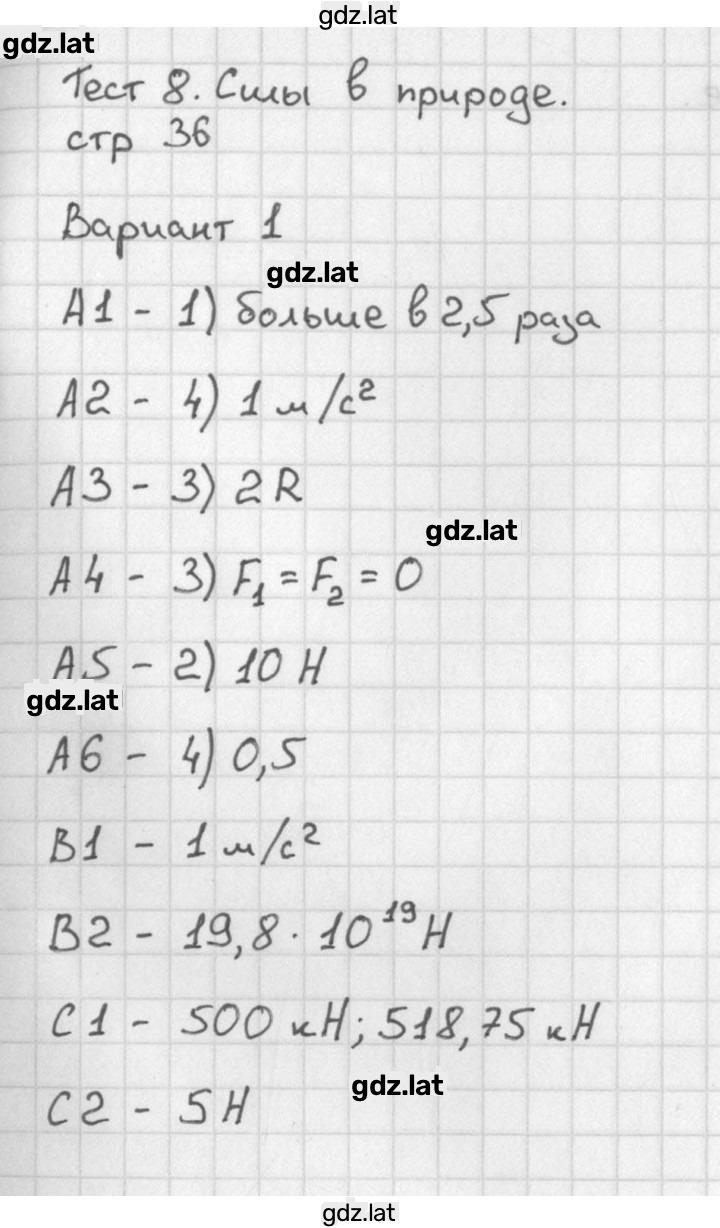 gdz.lat
gdz.lat
Тест 8. Силы в природе.
стр 36
Вариант 1
gdz.lat
А1 - 1) больше в 2,5 раза
А2 - 4) 1 м/с²
А3 - 3) 2R
gdz.lat
А4 - 3) F₁ = F₂ = 0
А5 - 2) 10 Н
gdz.lat
А6 - 4) 0,5
В1 - 1 м/с²
В2 - 19,8 · 10¹⁹ Н
С1 - 500 кН; 518,75 кН
gdz.lat
С2 - 5 Н
gdz.lat